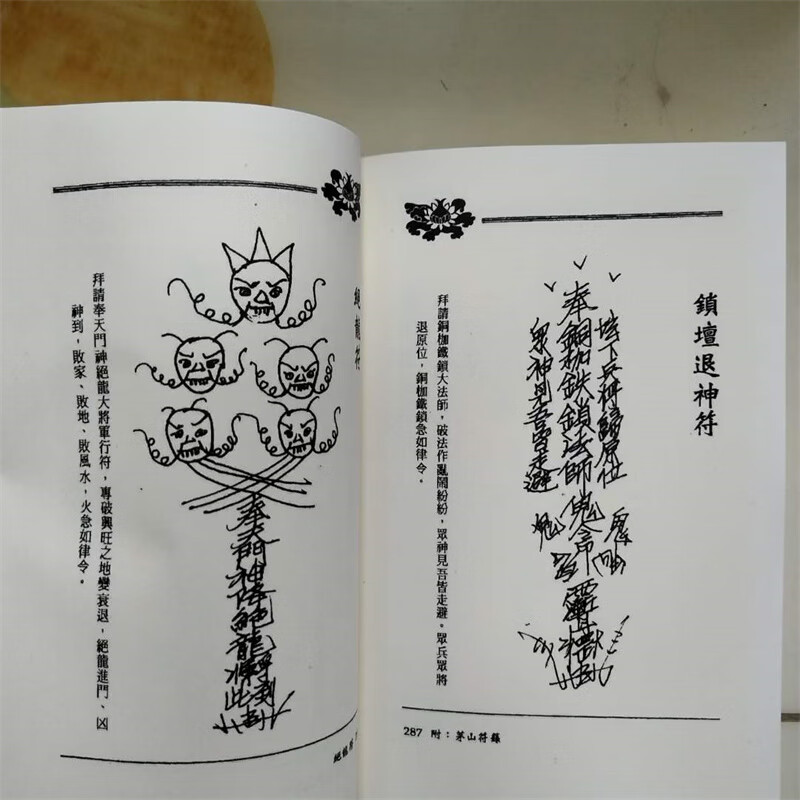 鎖壇退神符
奉銅枷鉄鎖法師
眾神見吾皆走避
拜請銅枷鐵鎖大法師，破法作亂鬧紛紛，眾神見吾皆走避。眾兵眾將
退原位，銅枷鐵鎖急如律令。
287 附：茅山符籙
絕龍符
奉天門神
拜請奉天門神絕龍大將軍行符，專破興旺之地變衰退，絕龍進門、凶
神到，敗家、敗地、敗風水，火急如律令。